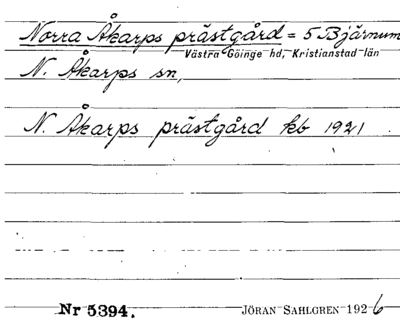 Norra Åkarps prästgård = 5 Bjärnum
Västra Göinge hd, Kristianstad län
N. Åkarps sn,
N. Åkarps prästgård kb 1921
Nr 5394.
JÖRAN SAHLGREN 1926